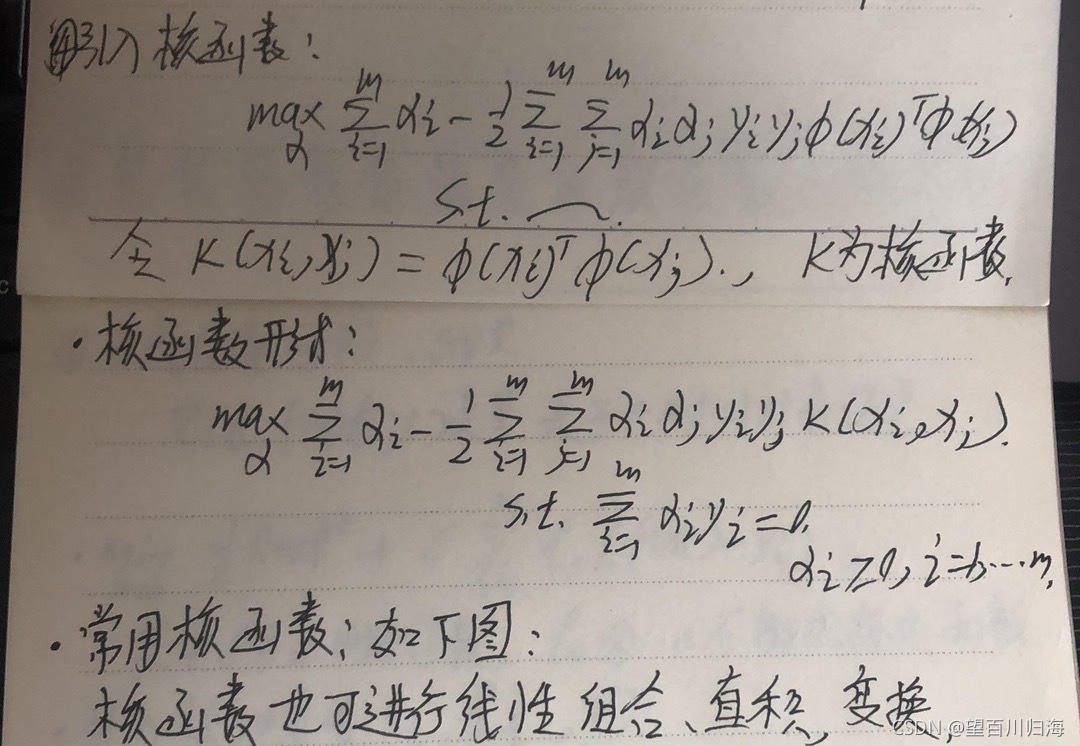 引入核函数:
max_α Σ_{i=1}^m α_i - 1/2 Σ_{i=1}^m Σ_{j=1}^m α_i α_j y_i y_j φ(x_i)^T φ(x_j)
s.t. ⌒.
令 K(x_i, x_j) = φ(x_i)^T φ(x_j)., K为核函数.
·核函数形式:
max_α Σ_{i=1}^m α_i - 1/2 Σ_{i=1}^m Σ_{j=1}^m α_i α_j y_i y_j K(x_i, x_j).
s.t. Σ_{i=1}^m α_i y_i = 0.
α_i ≥ 0, i = 1, ... m,
·常用核函数;如下图:
核函数也可进行线性组合、直积,变换,
CSDN @望百川归海